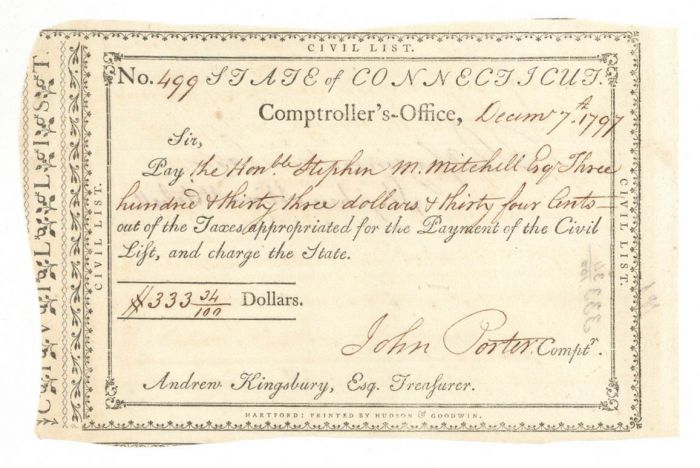 CIVIL LIST.
No. 499 STATE of CONNECTICUT.
Comptroller's-Office, Decemr 7th. 1797
Sir,
Pay the Honble Stephen M. Mitchell Esqr Three
hundred & thirty three dollars & thirty four Cents
out of the Taxes appropriated for the Payment of the Civil
Lift, and charge the State.
$333 34/100 Dollars.
John Porter Comptr.
Andrew Kingsbury, Esq. Treasurer.
HARTFORD: PRINTED BY HUDSON & GOODWIN.
CIVIL LIST.
CIVIL LIST.
CIVIL LIST.